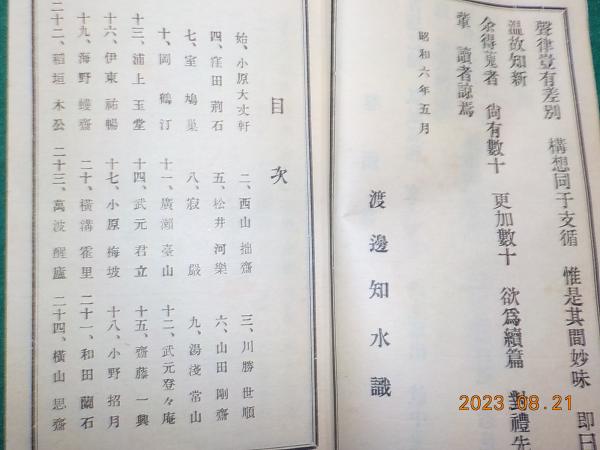 聲律豈有差別　構想同于支循　惟是其間妙味　即日
溫故知新
余得蒐者　尙有數十　更加數十　欲爲續篇　對禮先
輩　讀者諒焉
昭和六年五月
渡邊知水識
目次
始、小原大丈軒　二、西山拙齋　三、川勝世順
四、窪田荊石　五、松井河樂　六、山田剛齋
七、室鳩巢　八、寂嚴　九、湯淺常山
十、岡鶴汀　十一、廣瀨臺山　十二、武元登々庵
十三、浦上玉堂　十四、武元君立　十五、齋藤一興
十六、伊東祐暢　十七、小原梅坡　十八、小野招月
十九、海野蠖齋　二十、橫溝藿里　二十一、和田蘭石
二十二、稻垣木公　二十三、萬波醒廬　二十四、橫山思齋
2023 08.21